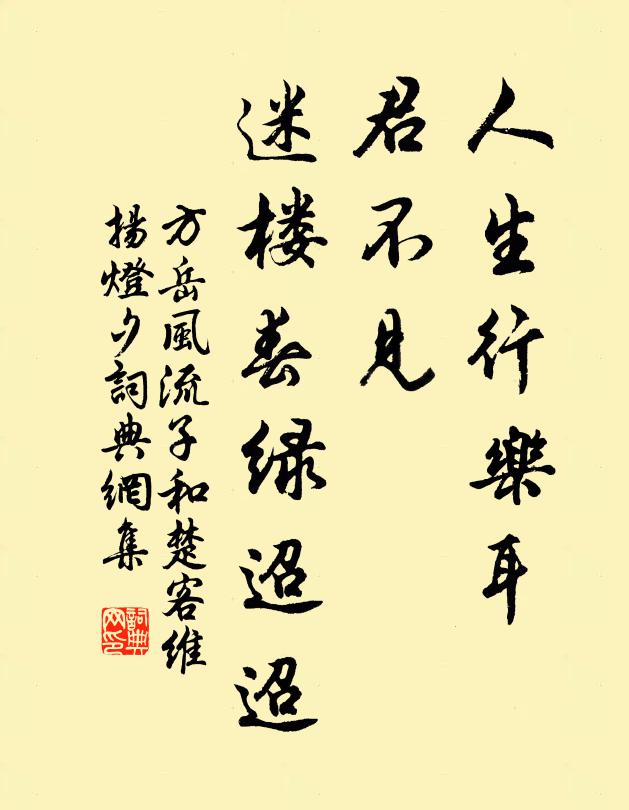 人生行樂耳
君不見
迷楼春緑迢迢
方岳風流子和楚客維
揚燈夕詞典網集
詞典
网印